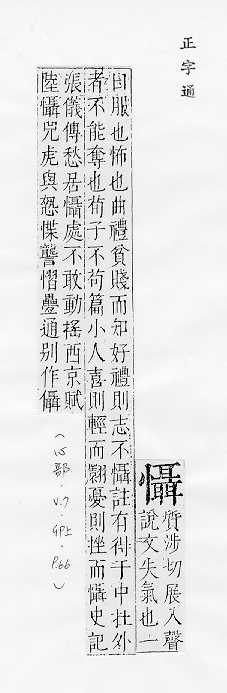 正字通
懾
質涉切展入聲
說文失氣也一
曰服也怖也曲禮貧賤而知好禮則志不懾註有得于中在外
者不能奪也荀子不苟篇小人喜則輕而翾憂則挫而懾史記
張儀傳愁居懾處不敢動搖西京賦
陸懾兕虎與慹慴讋慴疊通別作㒤
(心部.V.7
4P上.P.66)